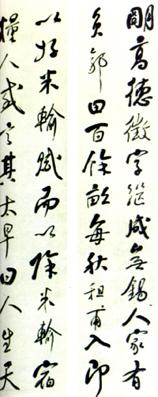 明高德徵字繼咸無錫人家有
負郭田百餘畝每秋租甫入即
以好米輸賦而以除米輸宿
糧人或言其太早曰人生天